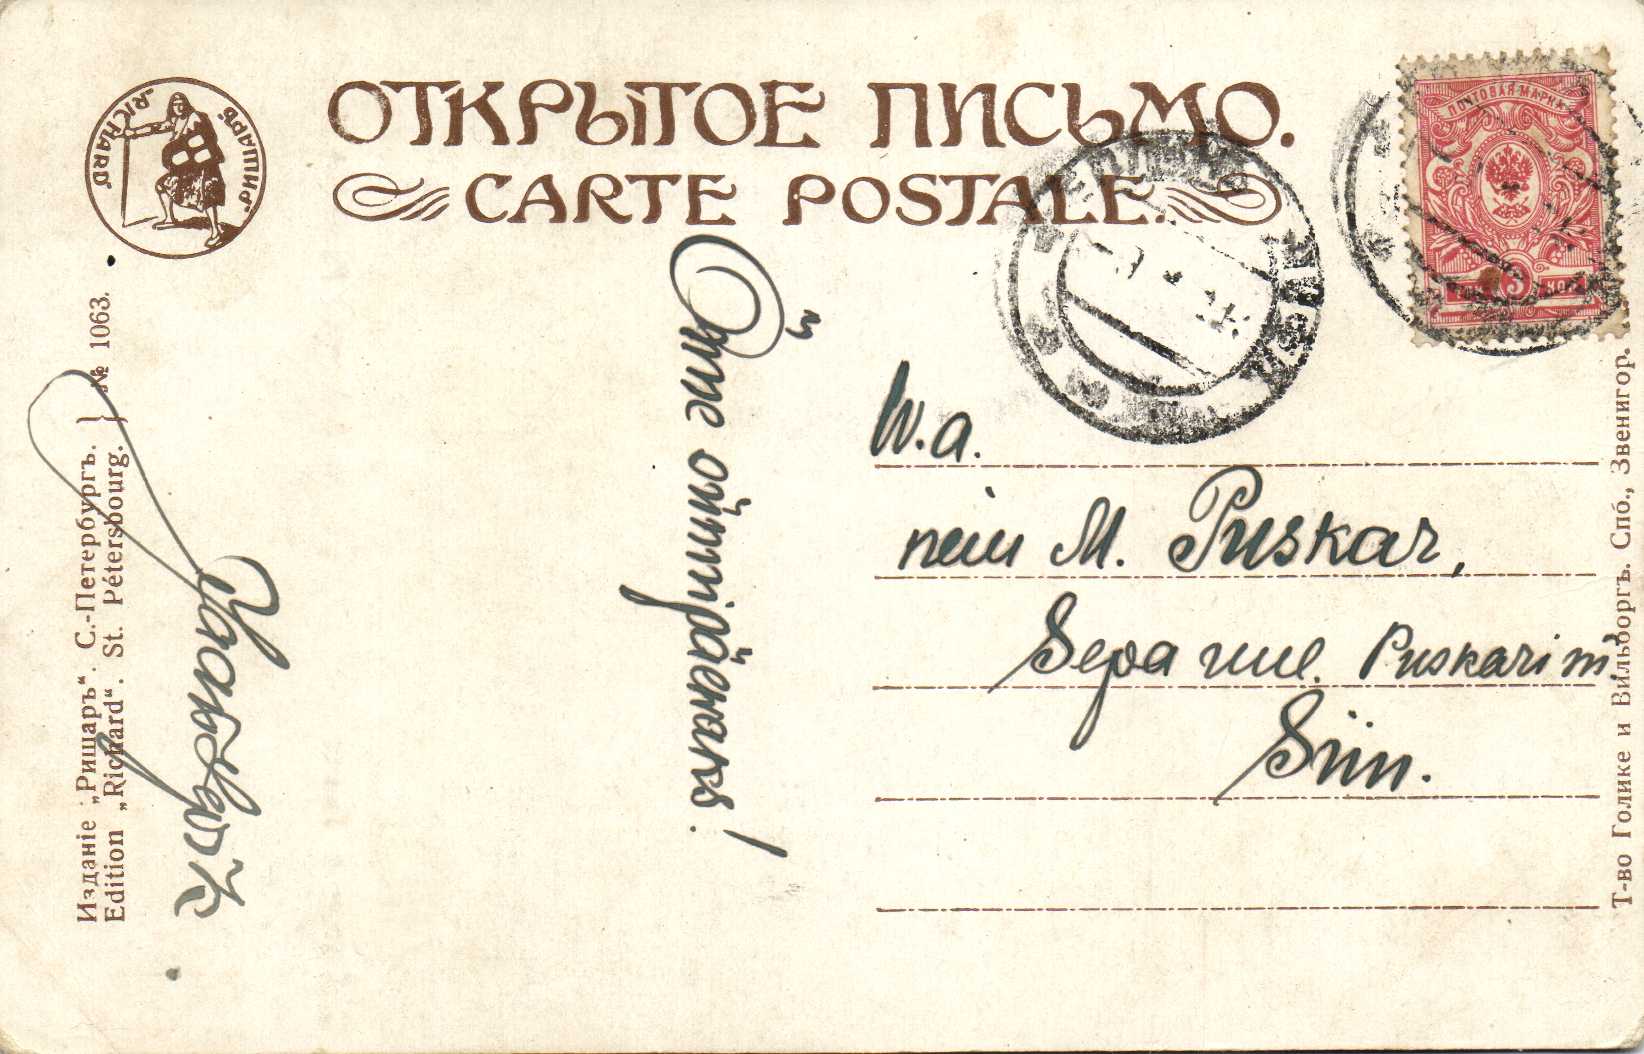 ОТКРЫТОЕ ПИСЬМО.
CARTE POSTALE.
„RICHARD“
„РИШАРЪ“
ПОЧТОВАЯ МАРКА
3
КОП
W.a.
neiu M. Puskar,
Sepa uul. Puskari m.
Siin.
Õnne
Изданіе „Ришаръ“. С.-Петербургъ.
Edition „Richard“. St. Pétersbourg.
№ 1063.
Т-во Голике и Вильборгъ. Спб., Звенигор.